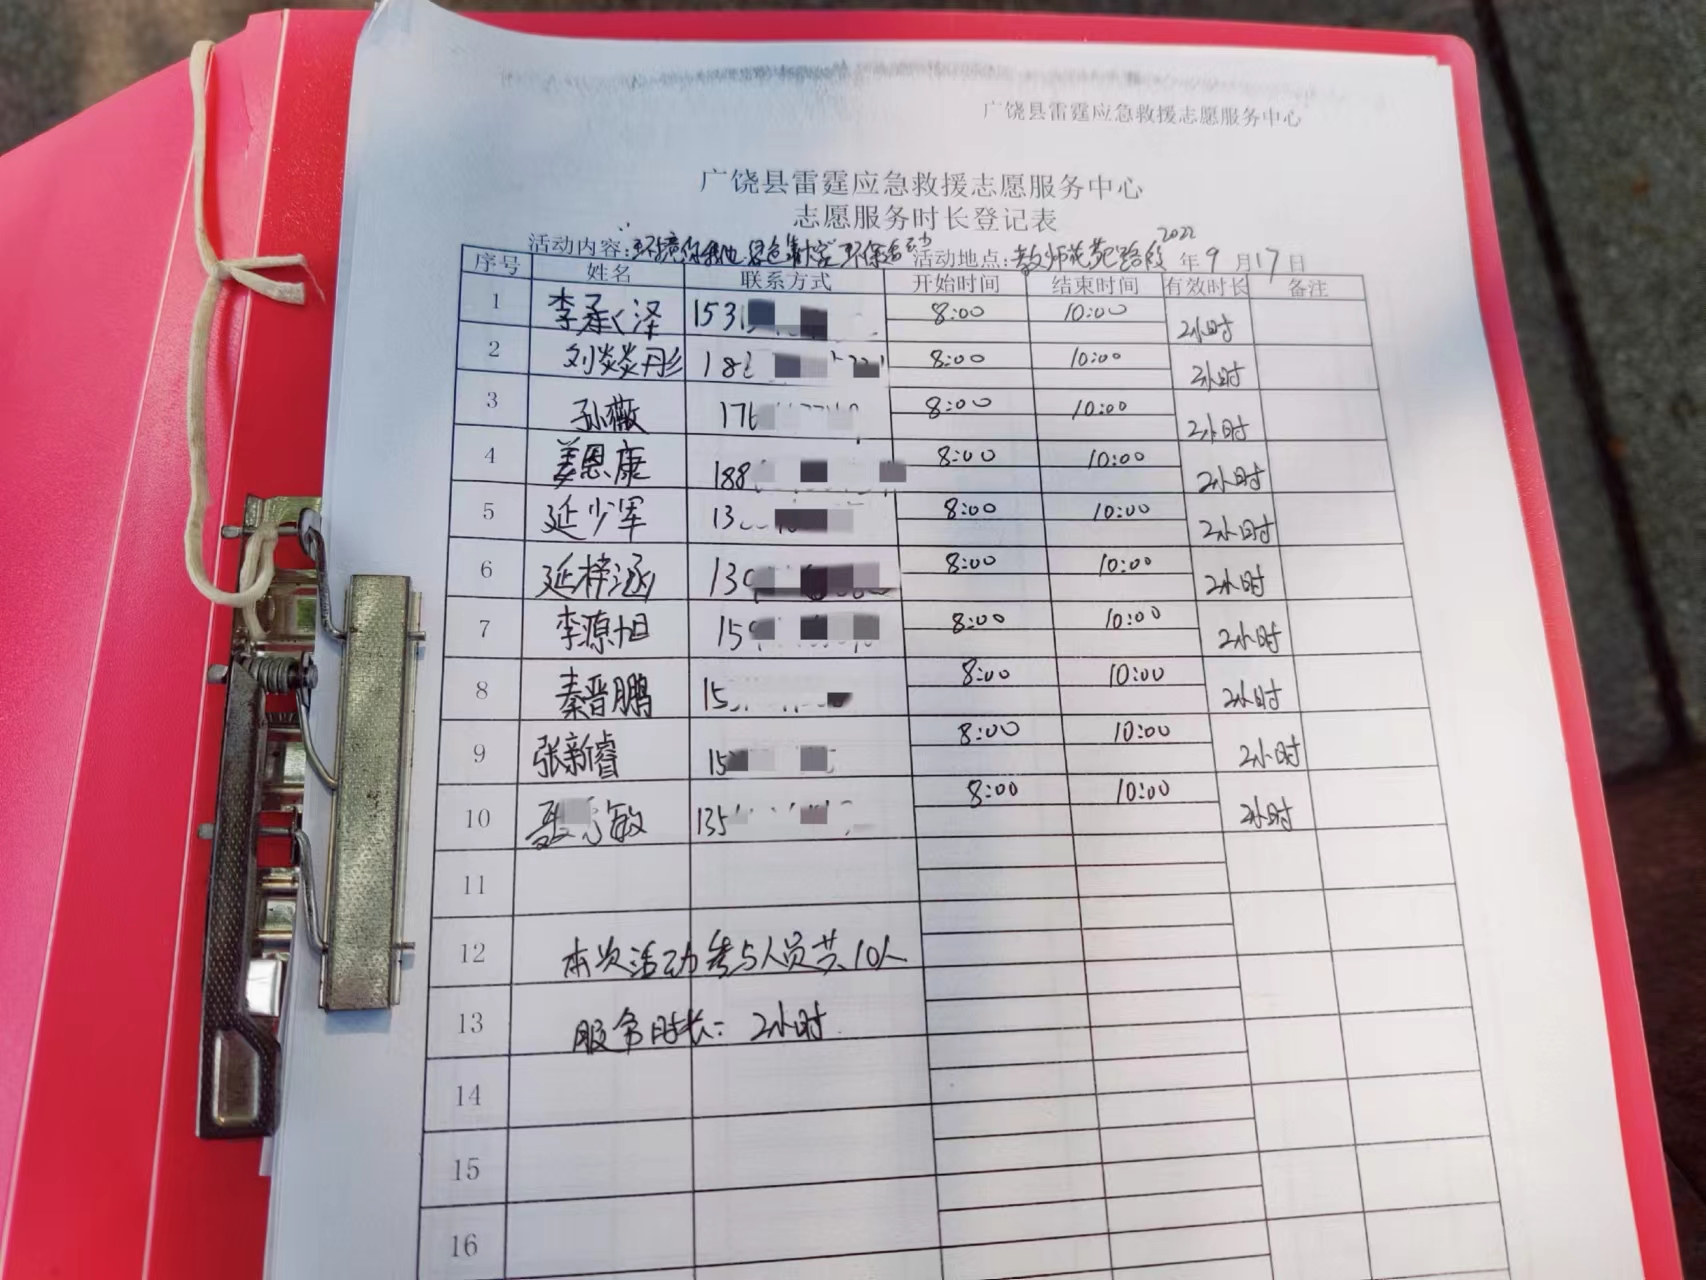 广饶县雷霆应急救援志愿服务中心
广饶县雷霆应急救援志愿服务中心
志愿服务时长登记表
活动内容: 环境 绿色 环保活动 活动地点: 教师花苑路段 2022 年 9 月 17 日
序号 姓名 联系方式 开始时间 结束时间 有效时长 备注
1 李承泽 153 8:00 10:00 2小时
2 刘焱彤 18 8:00 10:00 2小时
3 孙薇 176 8:00 10:00 2小时
4 姜恩康 188 8:00 10:00 2小时
5 延少军 13 8:00 10:00 2小时
6 延梓涵 13 8:00 10:00 2小时
7 李源旭 15 8:00 10:00 2小时
8 秦晋鹏 15 8:00 10:00 2小时
9 张新睿 15 8:00 10:00 2小时
10 敏 135 8:00 10:00 2小时
11
12 本次活动参与人员共10人
13 服务时长: 2小时
14
15
16